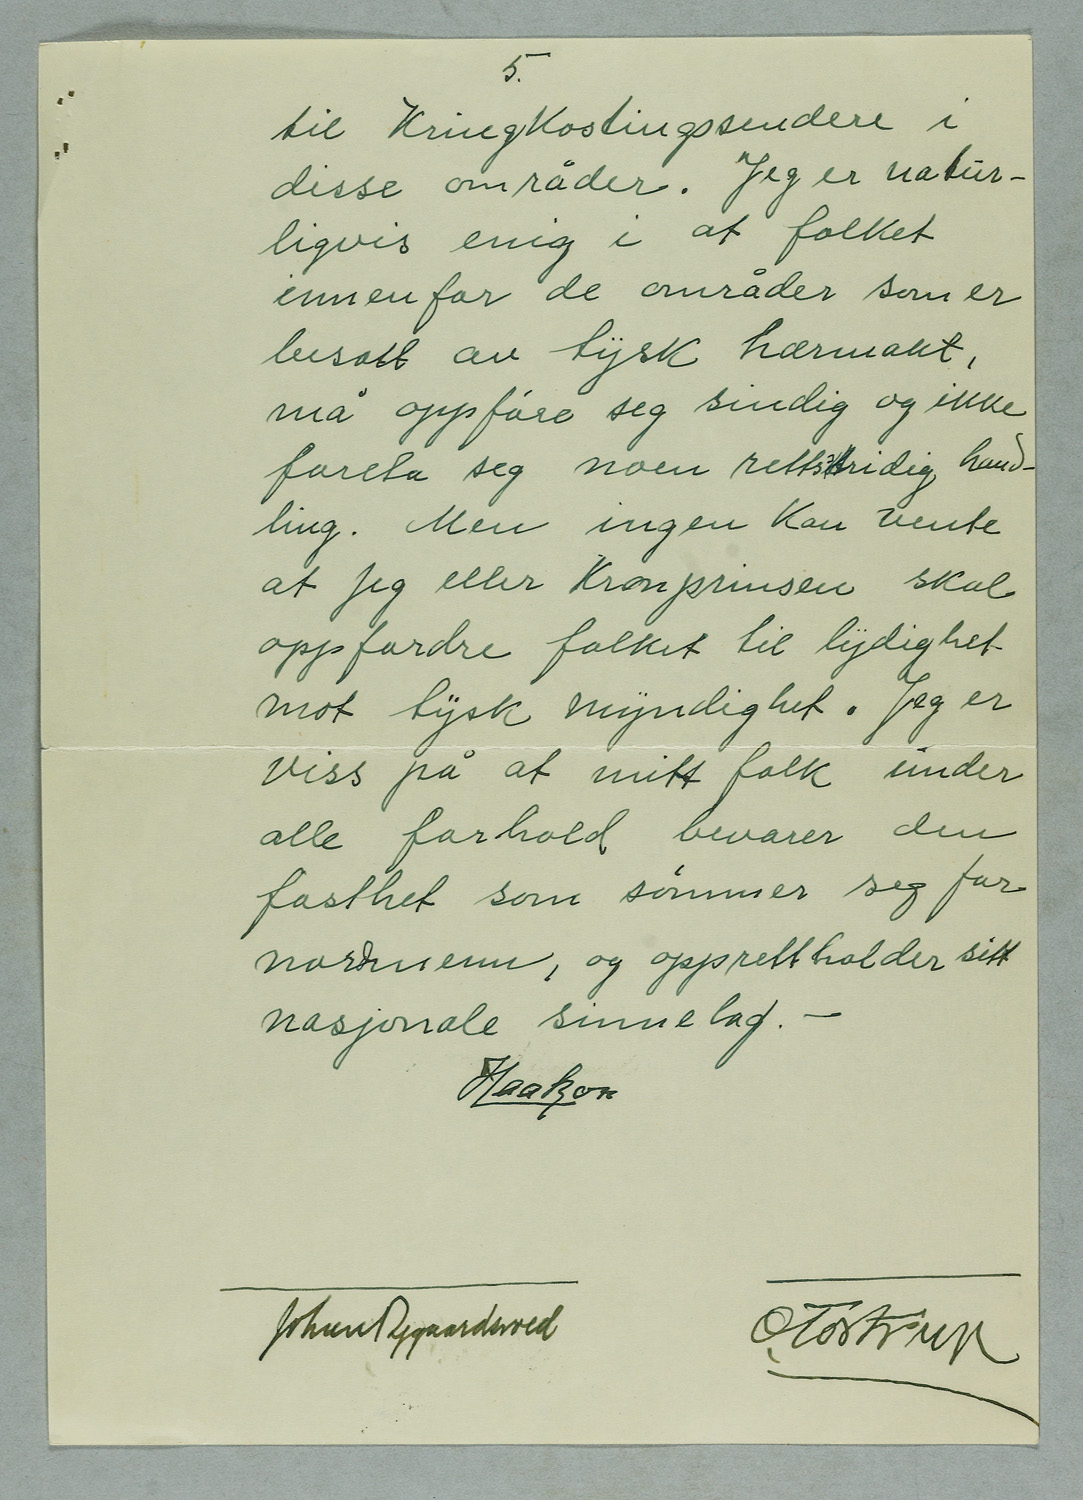 5.
til Kringkastingssendere i
disse områder. Jeg er natur-
ligvis enig i at folket
innenfor de områder som er
besatt av tysk hærmakt,
må oppføre seg sindig og ikke
foreta seg noen rettsstridig hand-
ling. Men ingen kan vente
at jeg eller Kronprinsen skal
oppfordre folket til lydighet
mot tysk myndighet. Jeg er
viss på at mitt folk under
alle forhold bevarer den
fasthet som sømmer seg for
nordmenn, og opprettholder sitt
nasjonale sinnelag. —
Haakon
Johan Nygaardsvold
O Tostrup